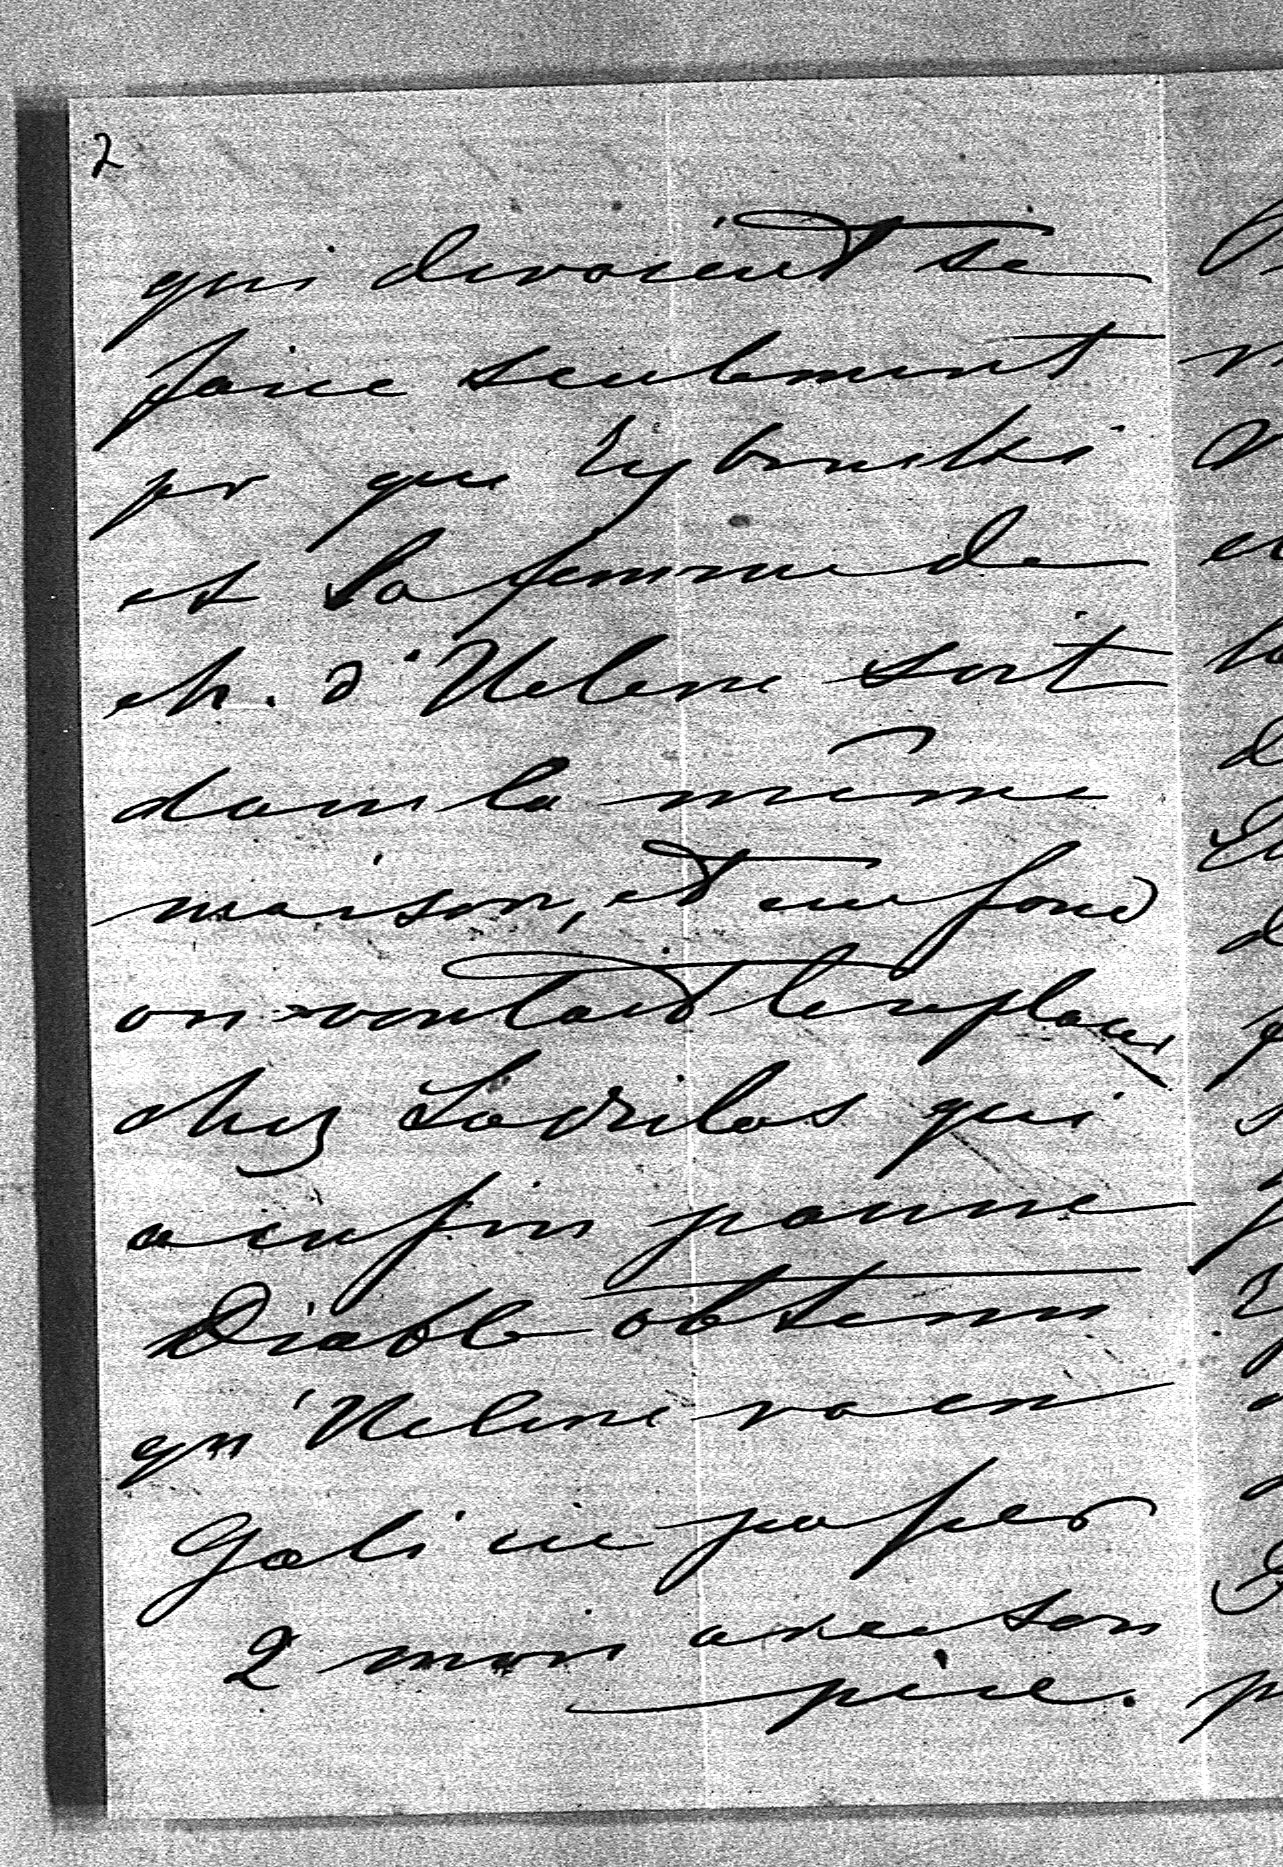 2
qui devoient se
faire seulement
pr que
et la femme de
ch. d'Helene soit
dans la même
maison, et au fond
on voulait les placer
chez qui
a enfin pauvre
Diable obtenu
qu'Helene va en
passer
2 mois avec son
père.